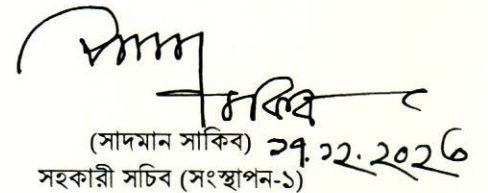 সাকিব
(সাদমান সাকিব) ২৭.১২.২০২৬
সহকারী সচিব (সংস্থাপন-১)